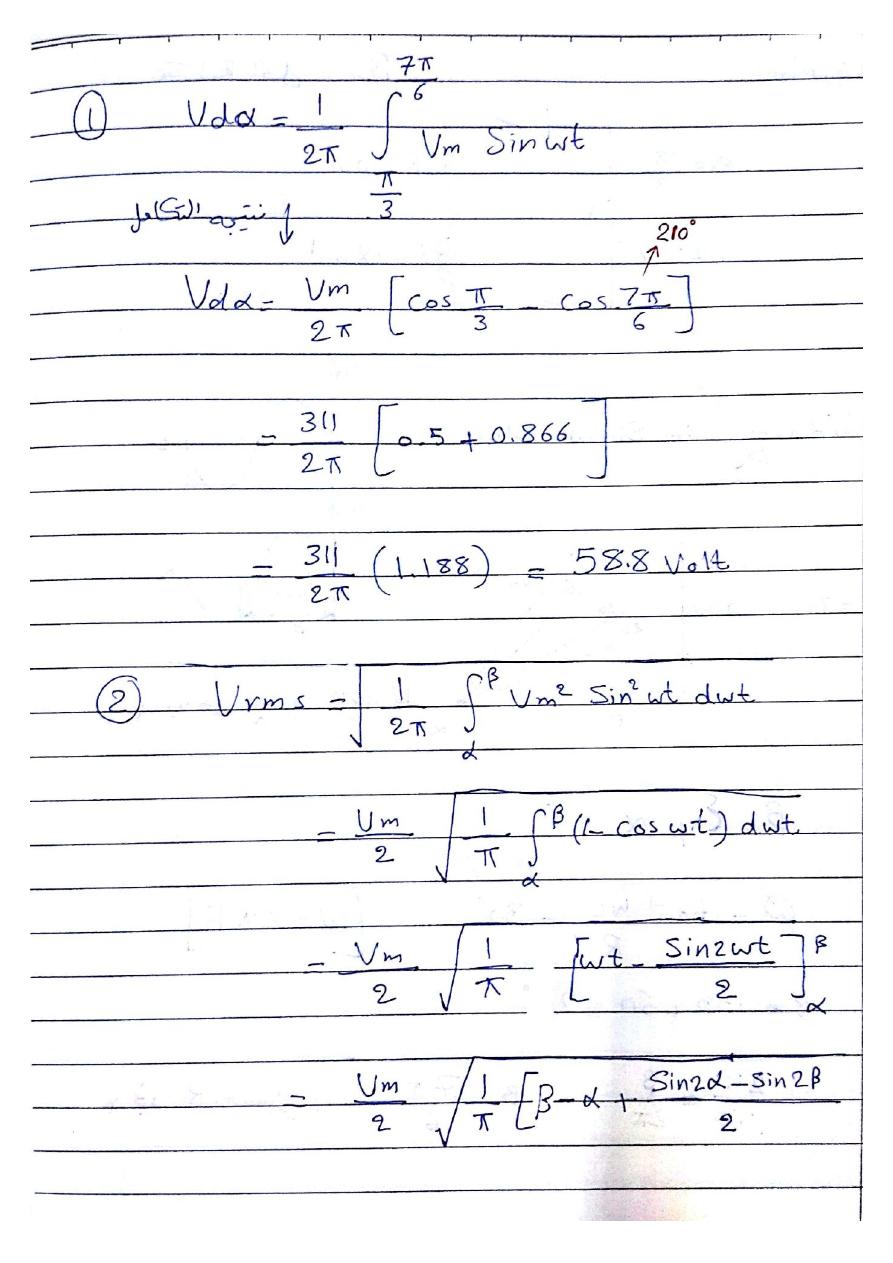 ① Vdα = 1/2π ∫_{π/3}^{7π/6} Vm Sin wt
نتيجة التكامل ↓
210°
Vdα = Vm/2π [cos π/3 - cos 7π/6]
= 311/2π [0.5 + 0.866]
= 311/2π (1.188) = 58.8 Volt
② Vrms = √(1/2π ∫_α^β Vm² Sin² wt dwt
= Vm/2 √(1/π ∫_α^β (1- cos wt) dwt
= Vm/2 √(1/π [wt - Sin2wt/2]_α^β
= Vm/2 √(1/π [β-α + Sin2α - Sin2β/2